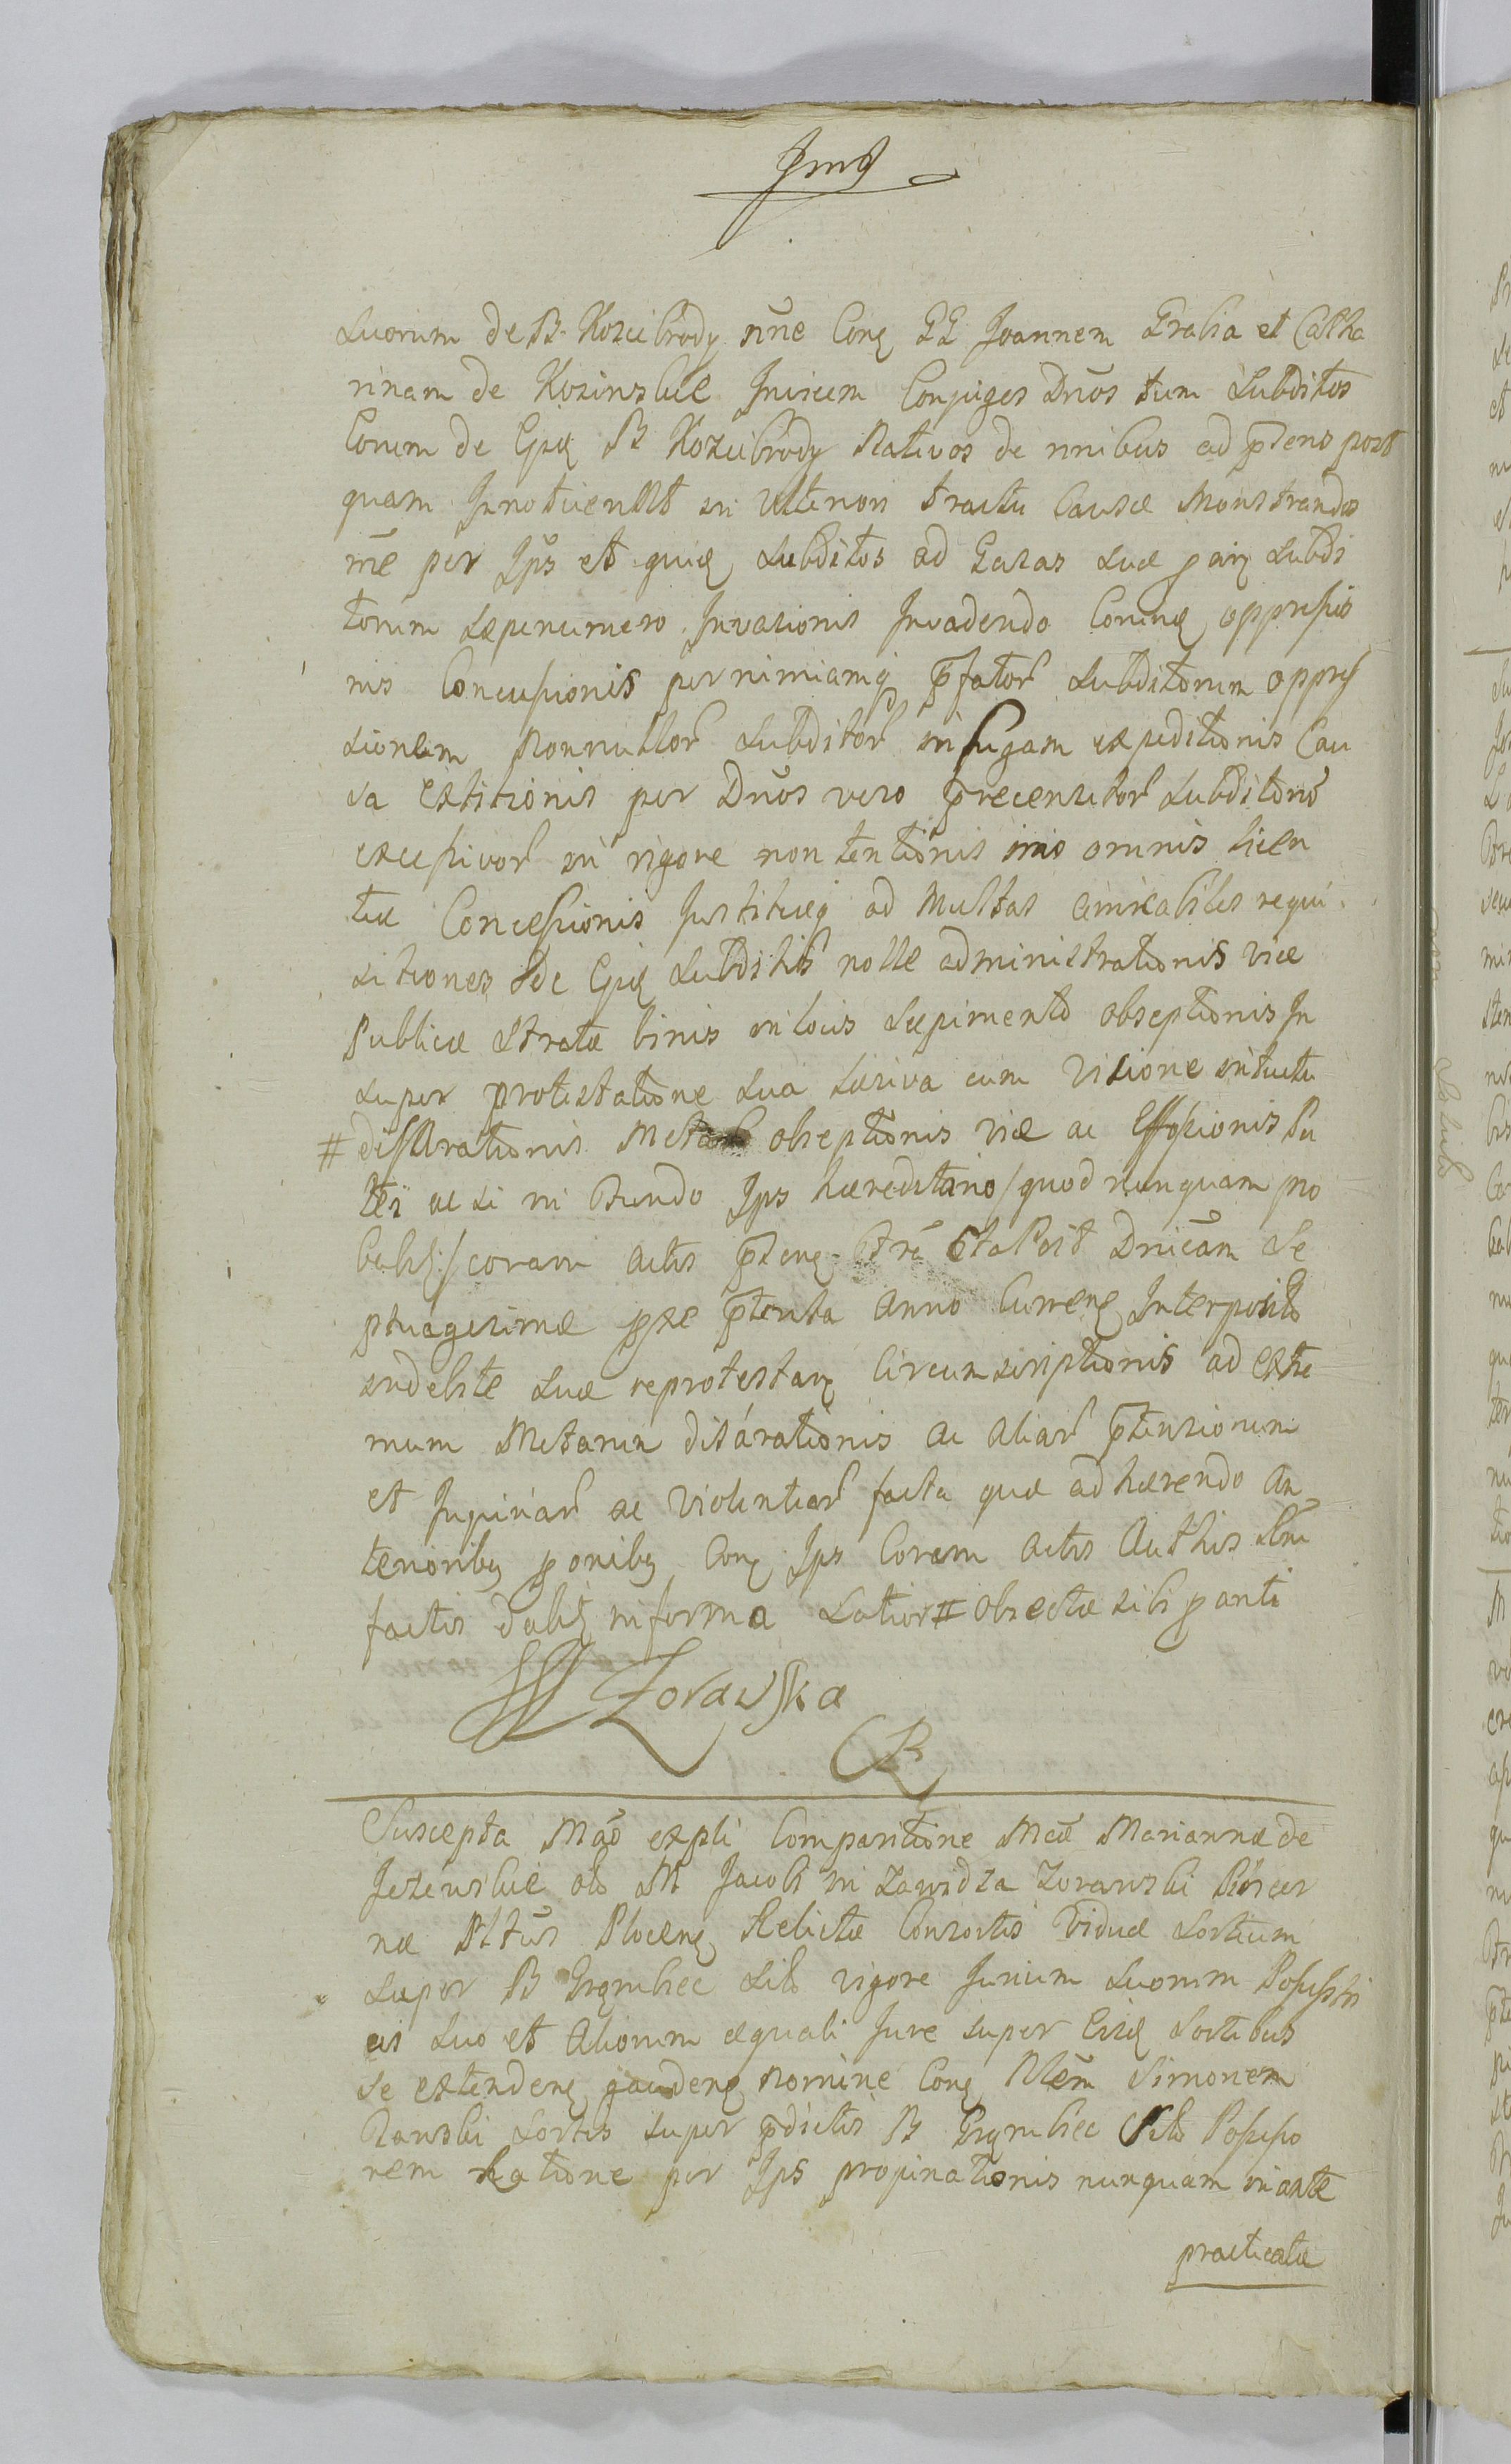 Img
Suorum de B. Kozicbrody nne Conq GG Joannem Grabia et Catha
rinam de Kozinskie Invicem Conjuges Dnos tum Subditos
Eorum de Ejusq B Kozicbrody Nativos de nnibus ad pstens post
quam Innotuerint in Ulteriori tractu Causæ Monstrandos
me per Ips et quiq Subditos ad Sasas Suæ parq Subdi
torum sæpenumero Invasionis Invadendo Eorumq oppressio
nis Concussionis per nimiamq pfator Subditorum oppres
sionem Nonnullor Subditor in fugam expeditionis Cau
sa Extitionis per Dnos vero precensitor Subditorum
excessivor in rigore non tentionis imo omnis licen
tiæ Concessionis Justitiæq ad Multas amicabiles requi
sitiones de Ejusq Subditis nolle administrationis viæ
Publicæ Stratæ binis in locis Sæpimento obseptionis In
super protestatione Sua cum Visione intuitu
# disArationis Metar obseptionis viæ ac Effossionis Pu
tei ac si in Fundo Ips hæreditario / quod nunquam pro
babit: / coram actis pstenq Fra Sta Post Dnicam Se
ptuagesimæ pxe ptenta Anno Currenq Interposito
indebite Suæ reprotestanq Circumscriptionis ad extre
mum Metarum disarationis ac aliar ptensionum
et Injuriar ac Violentiar facta quæ adhærendo An
teriorib ponib Conq Ips Coram actis Authis
factis dabit in forma Latiori # obiectæ sibi parti
W Zorawska
CR
Suscepta Mao expli Comparitione Mcæ Mariannæ de
Jezewskie olo M Jacobi in Zawidza Zorawski Pincer
næ Pltus Plocenq Relictæ Consortis Viduæ Sortium
Super B Grąmbiec Sito vigore Jurium Suorum Possessri
cis Suo et Aliorum æquali Jure super Eisq Sortibus
Se extendenq gaudenq Nomine Conq Nlem Simonem
Ranski Sortis super pdictis B Grąmbiec Sito Possesso
rem Ratione per Ips propinationis nunquam in ante
practicatæ